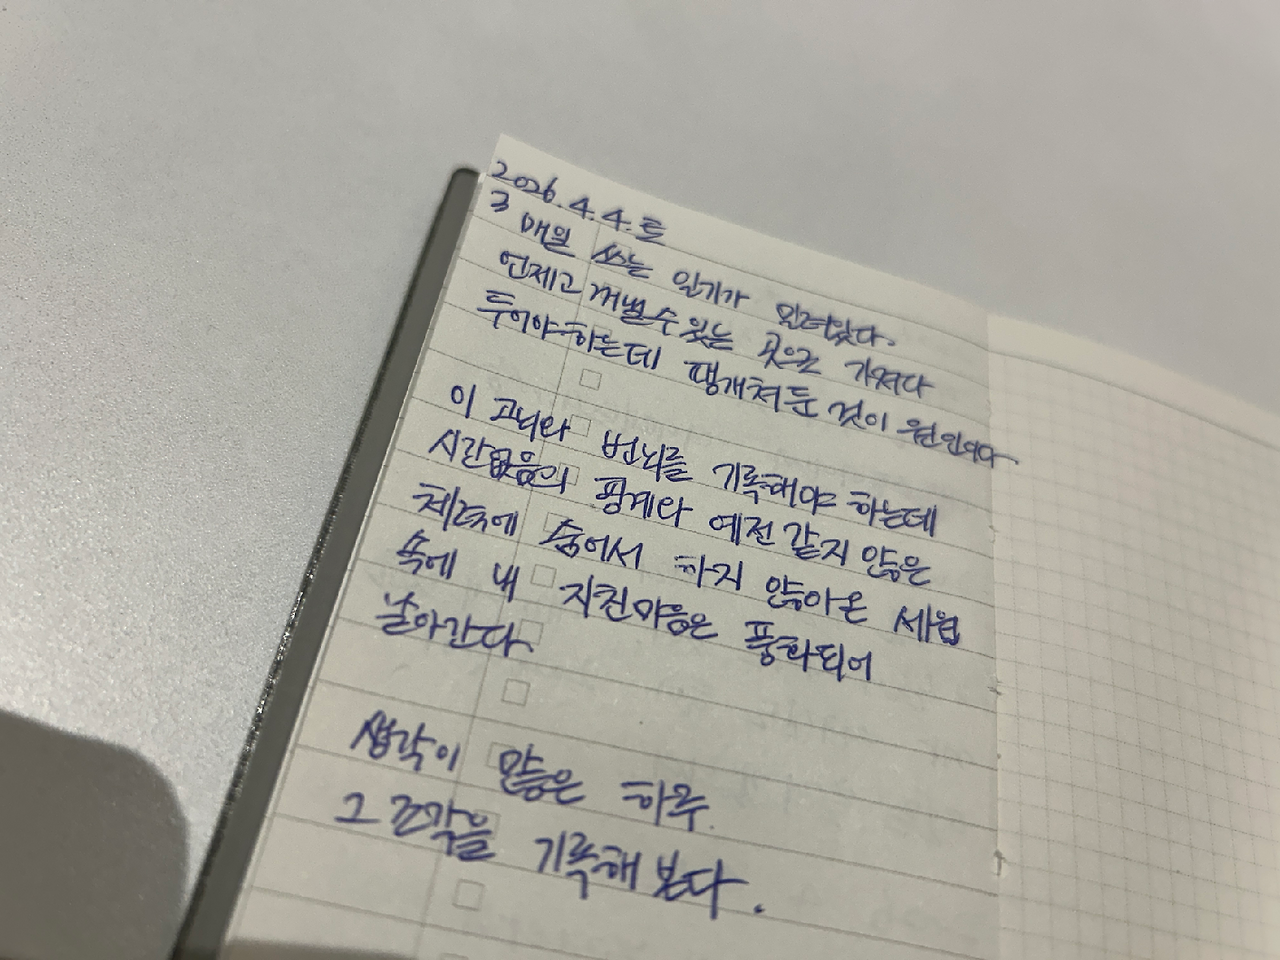 2026.4.4.토
3 매일 쓰는 일기가 밀려있다.
언제고 꺼낼 수 있는 곳으로 가져다
두어야 하는데 팽개쳐둔 것이 원인이다
이 고뇌와 번뇌를 기록해야 하는데
시간없음의 핑계와 예전 같지 않은
체력에 숨어서 하지 않아온 세월
속에 내 지친마음은 풍화되어
날아간다.
생각이 많은 하루.
그 조각을 기록해 본다.